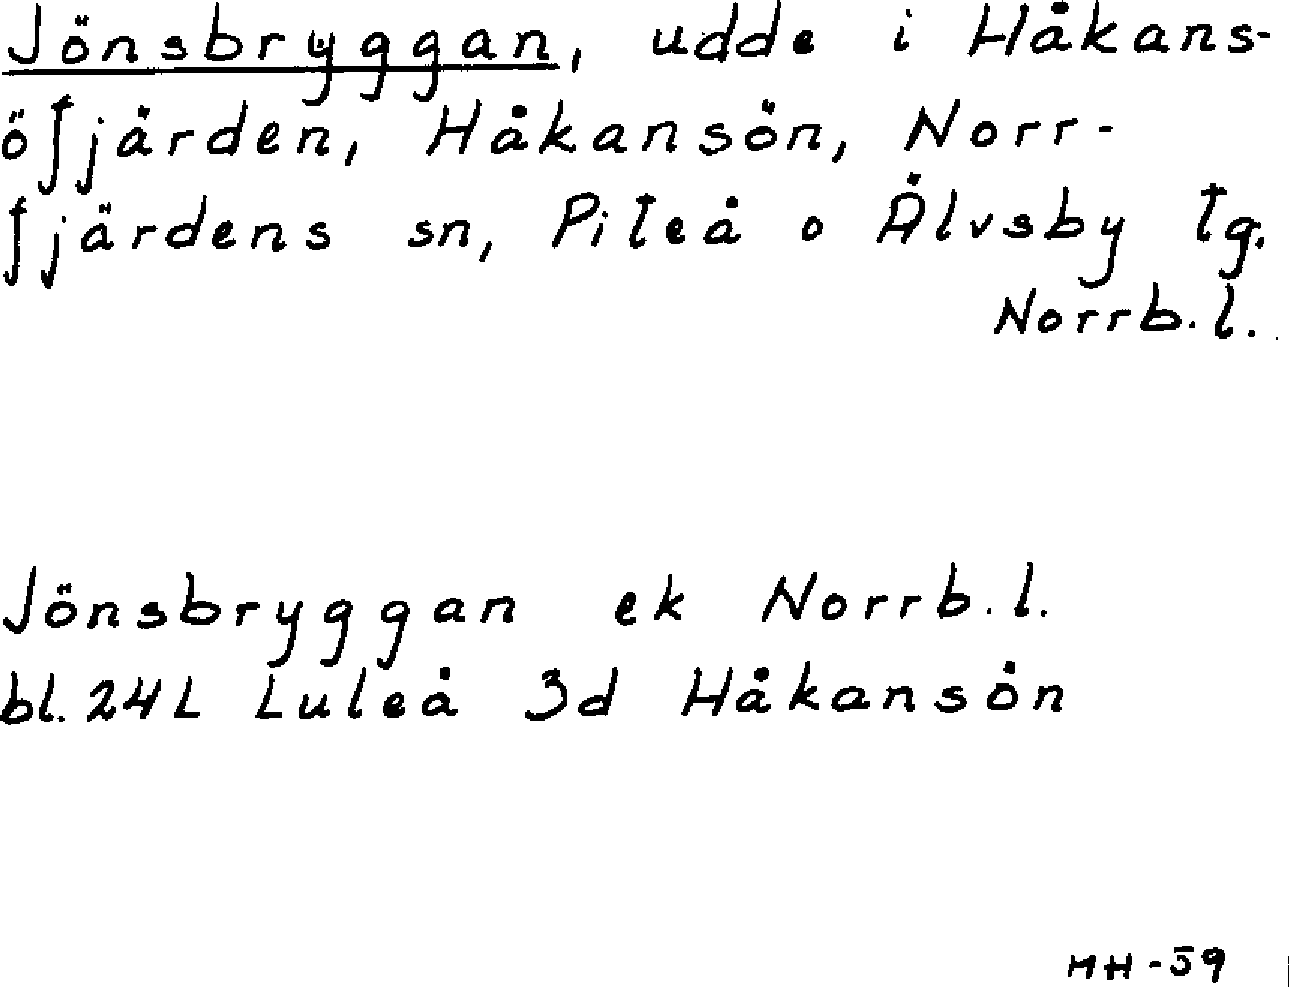 Jönsbryggan, udde i Håkans-
öfjärden, Håkansön, Norr-
fjärdens sn, Piteå o Älvsby tg.
Norrb.l.
Jönsbryggan ek Norrb.l.
bl. 24L Luleå 3d Håkansön
MH-59